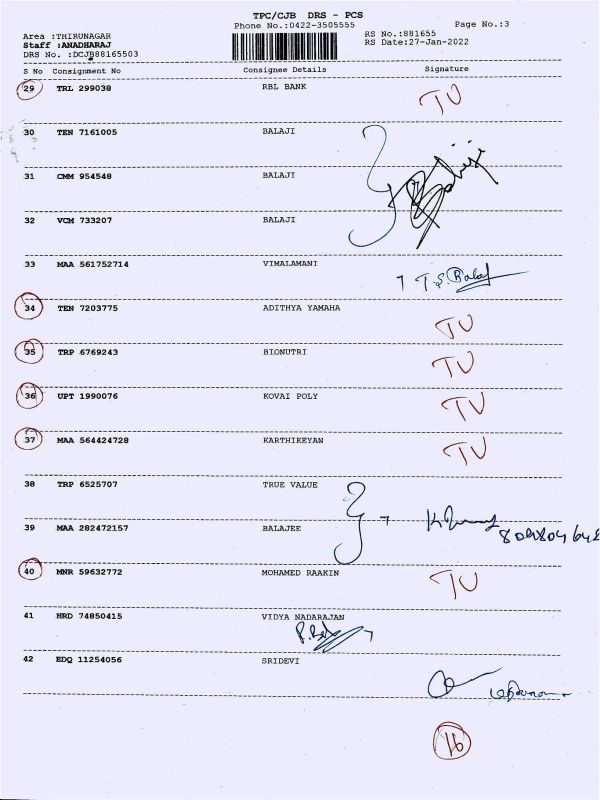 TPC/CJB DRS - PCS
Phone No.:0422-3505555 Page No.:3
Area :THIRUNAGAR RS No.:881655
Staff :ANADHARAJ RS Date:27-Jan-2022
DRS No. :DCJB88165503
S No Consignment No Consignee Details Signature
29 TRL 299038 RBL BANK TU
30 TEN 7161005 BALAJI
31 CMM 954548 BALAJI
32 VCM 733207 BALAJI
33 MAA 561752714 VIMALAMANI
T.S. Balaj
34 TEN 7203775 ADITHYA YAMAHA TU
35 TRP 6769243 BIONUTRI TU
36 UPT 1990076 KOVAI POLY TU
37 MAA 564424728 KARTHIKEYAN TU
38 TRP 6525707 TRUE VALUE
39 MAA 282472157 BALAJEE
40 MNR 59632772 MOHAMED RAAKIN TU
41 HRD 74850415 VIDYA NADARAJAN
42 EDQ 11254056 SRIDEVI
16